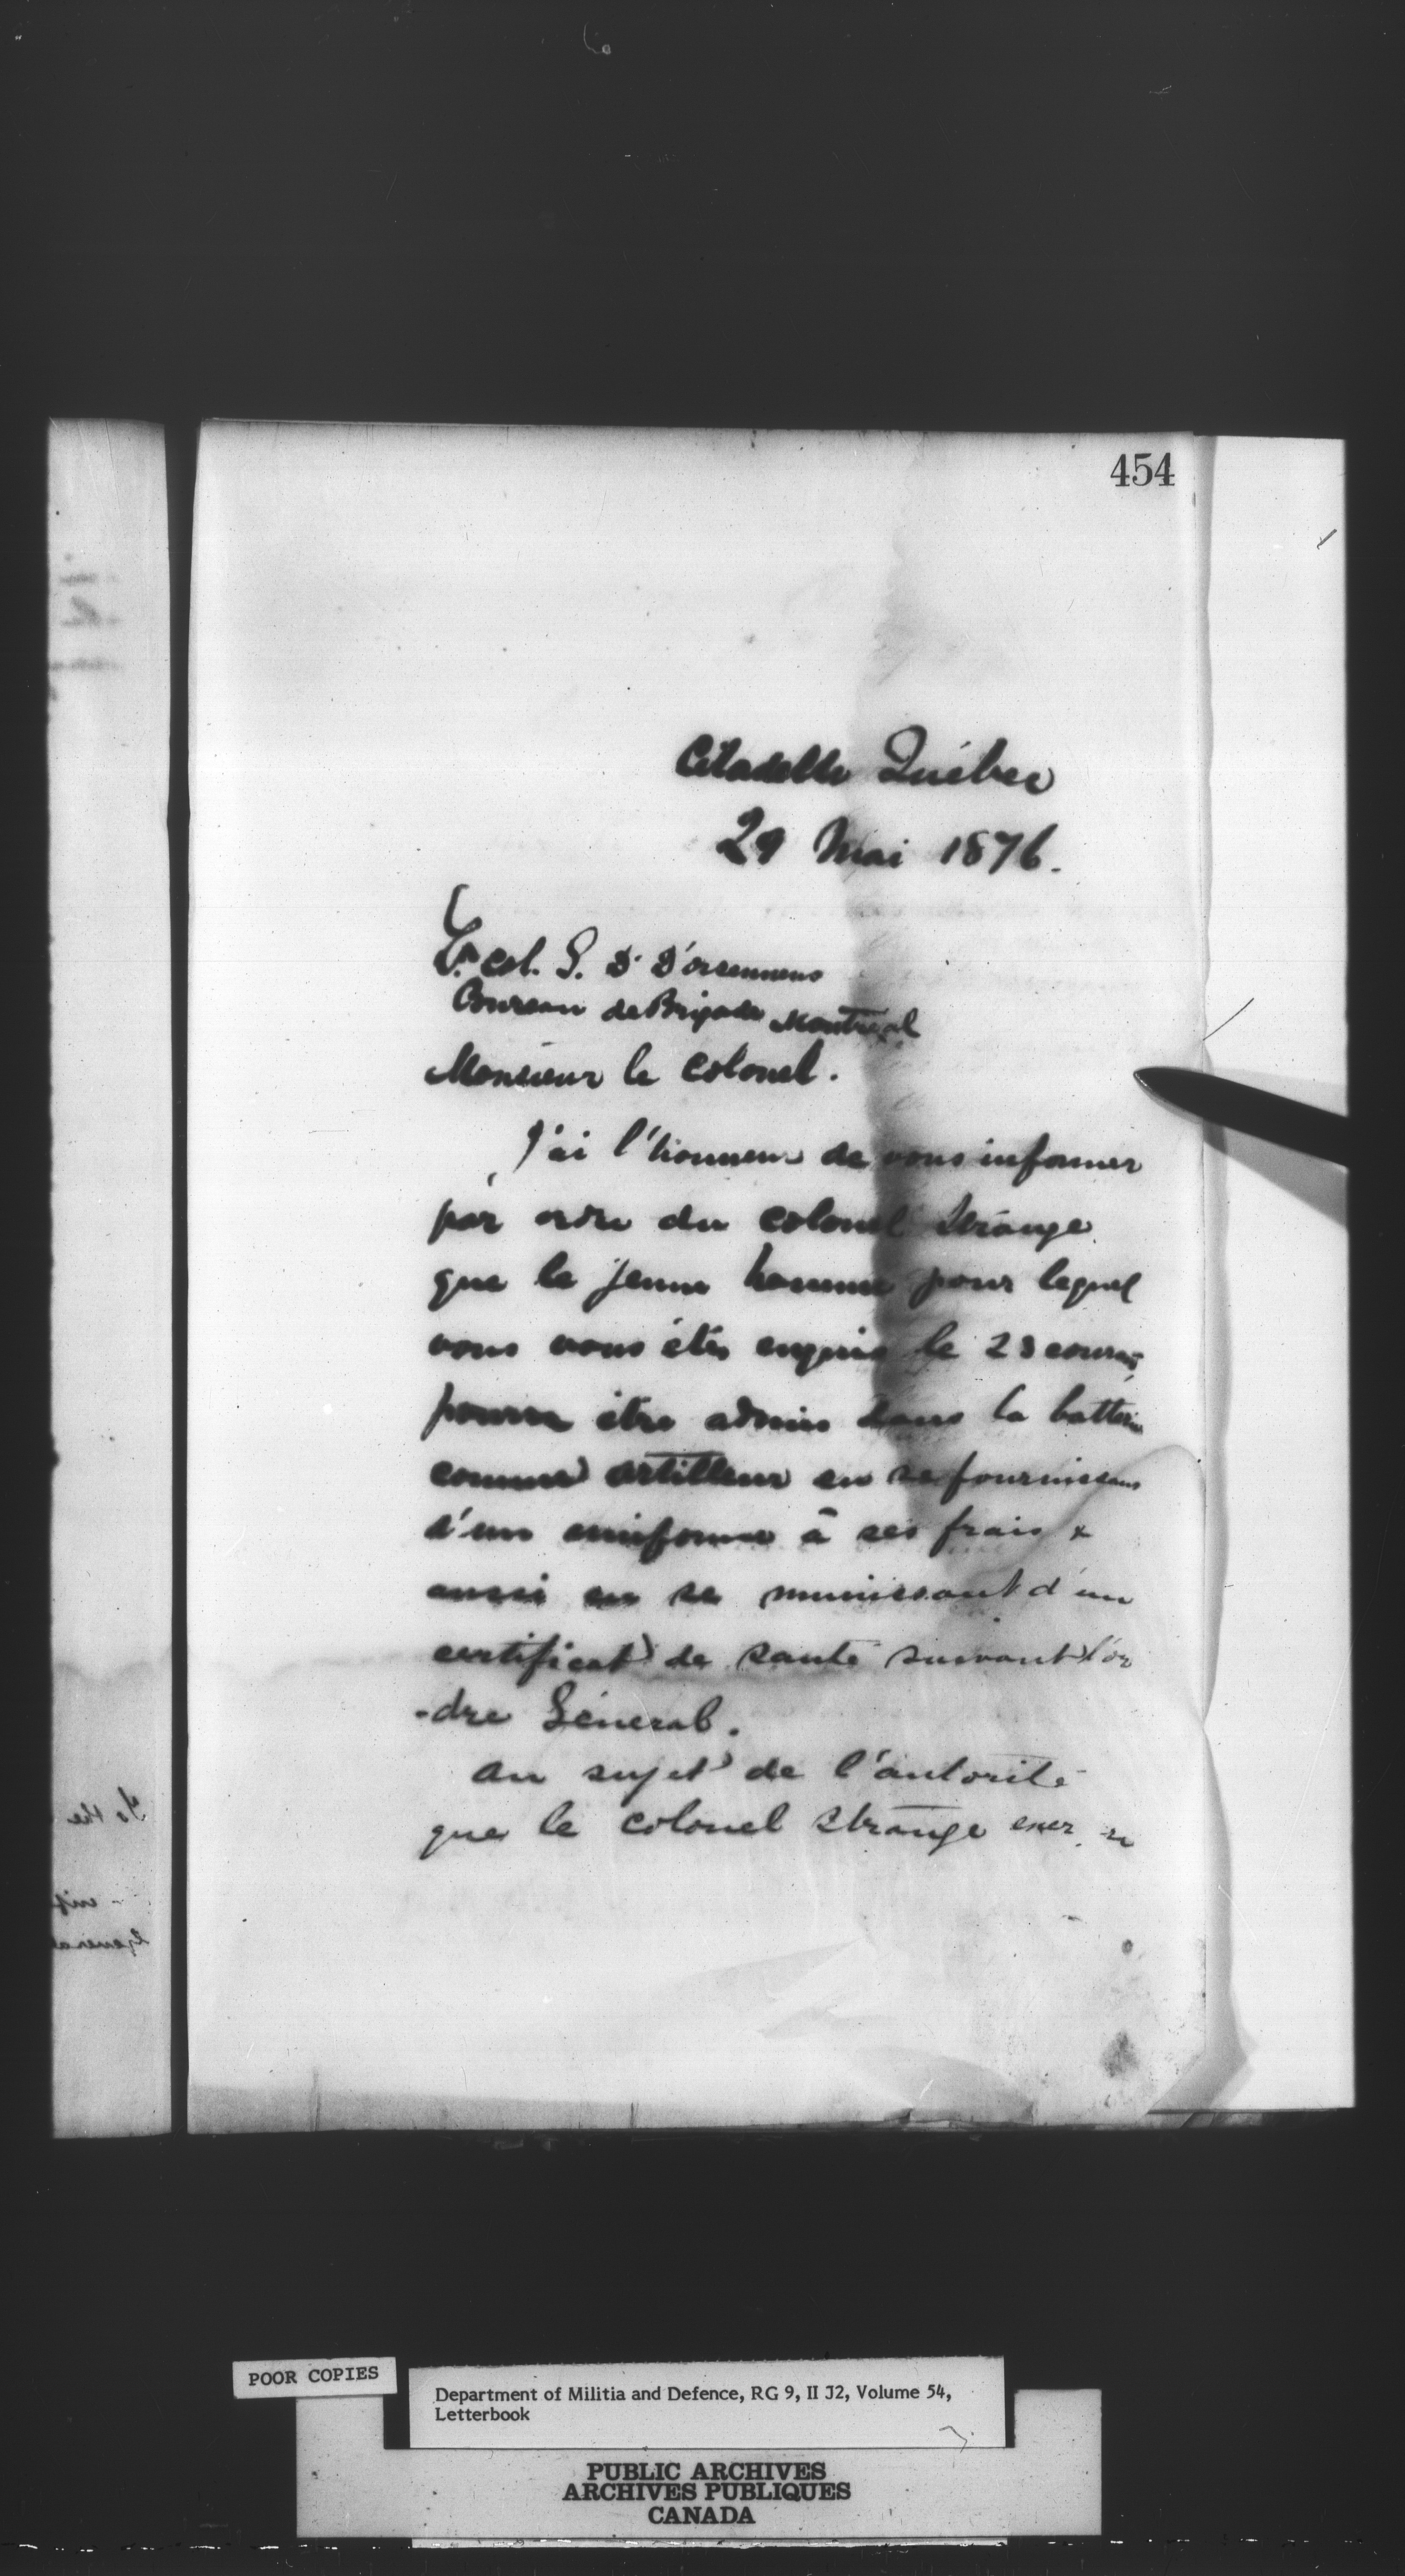 454
Citadelle Québec
29 Mai 1876.
Lt. Col. G. D' D'orsennens
Bureau de Brigade Montreal
Monsieur le Colonel.
J'ai l'honneur de vous informer
par ordre du colonel Strange
que le jeune homme pour lequel
vous vous êtes enquis le 23 courant
pourra être admis dans la batterie
comme artilleur en se fournissant
d'un uniforme à ses frais &
aussi en se munissant d'un
certificat de santé suivant l'or
-dre Général.
Au sujet de l'autorité
que le colonel Strange
POOR COPIES
Department of Militia and Defence, RG 9, II J2, Volume 54,
Letterbook
PUBLIC ARCHIVES
ARCHIVES PUBLIQUES
CANADA